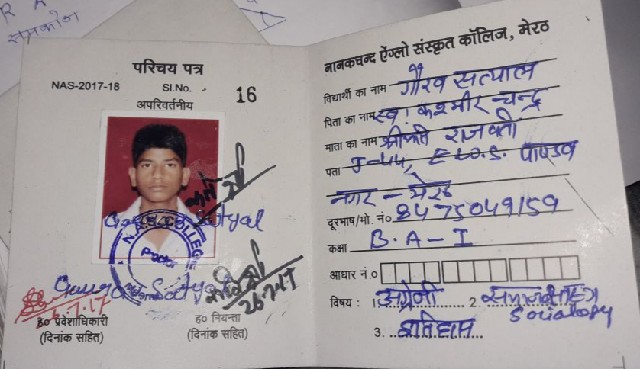 समकोण
परिचय पत्र
NAS-2017-18 Sl.No. 16
अपरिवर्तनीय
N.A.S. COLLEGE
Gaurav Satyal
Gaurav Satyal
26.7.17
ह0 प्रवेशाधिकारी
(दिनांक सहित)
ह0 नियन्ता
(दिनांक सहित)
नानकचन्द ऐंग्लो संस्कृत कॉलिज, मेरठ
विद्यार्थी का नाम गौरव सत्याल
पिता का नाम स्व. कश्मीर चन्द्र
माता का नाम श्रीमति राजवती
पता J-44, E.W.S. पाण्डव
नगर - मेरठ
दूरभाष/मो. नं० 8475049159
कक्षा B.A-I
आधार नं.0
विषय : 1. अंग्रेजी 2. समाजशास्त्र
Sociology
3. इतिहास